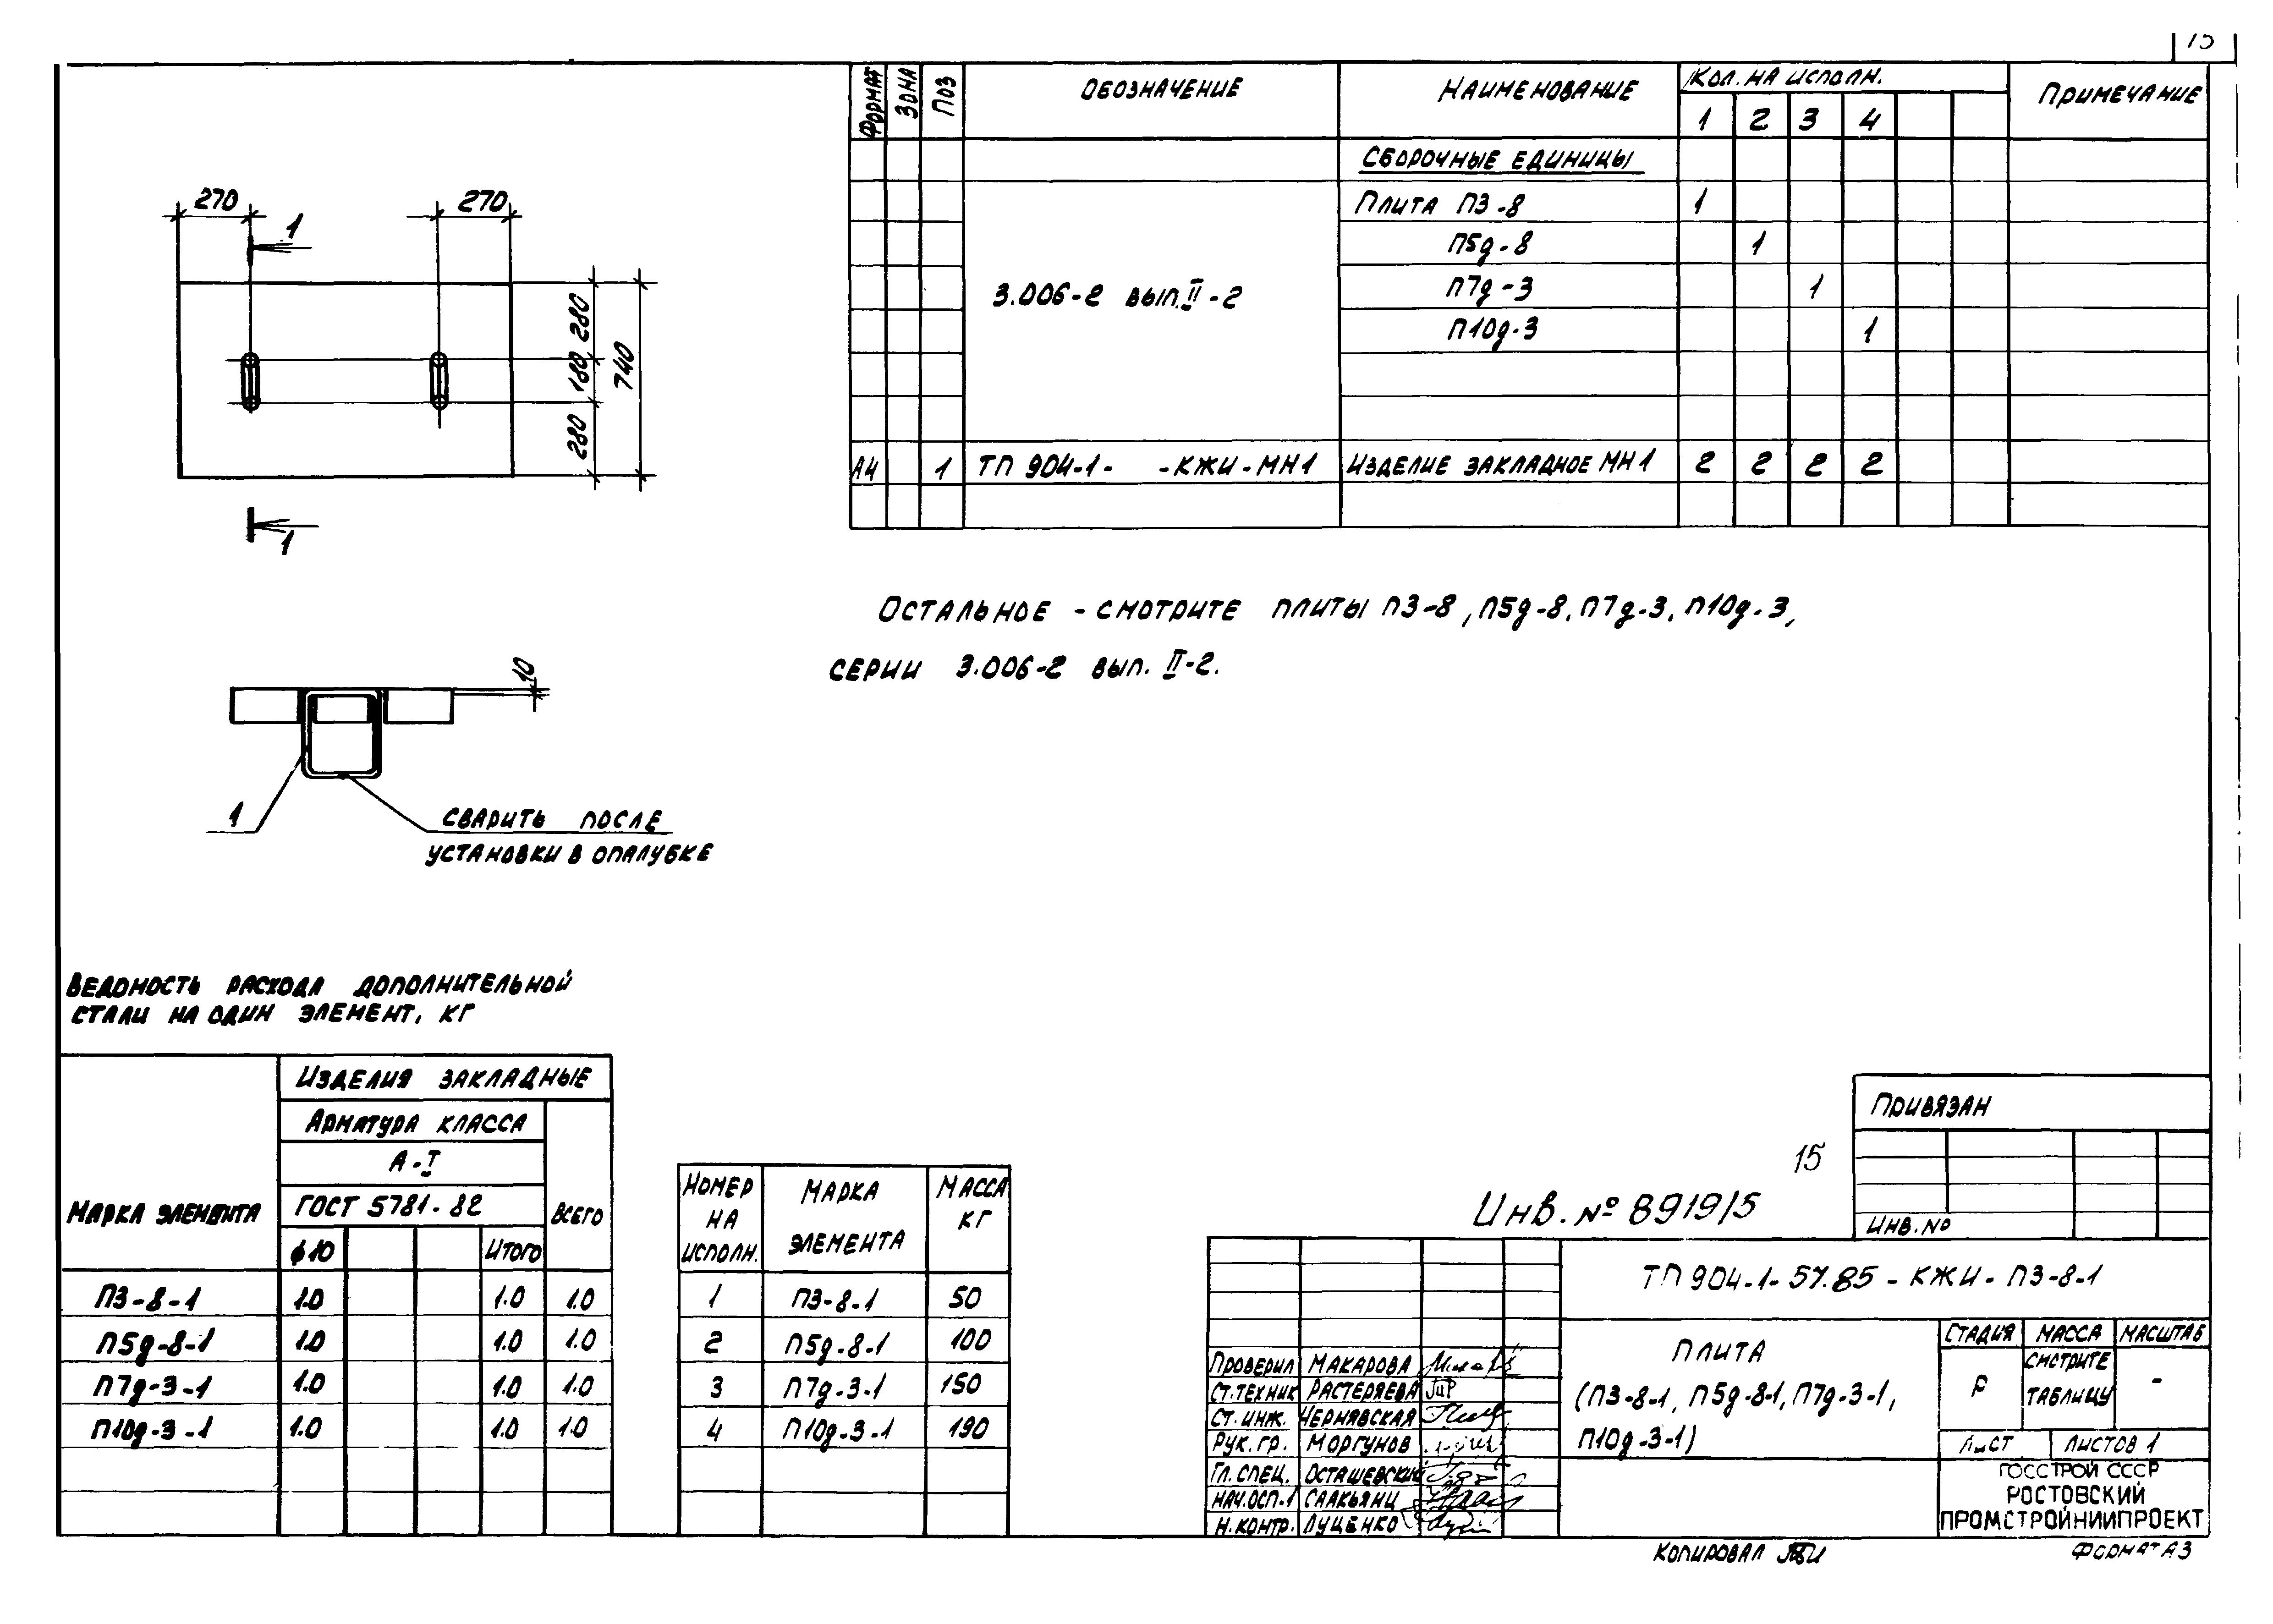 15
ФОРМАТ ЗОНА ПОЗ ОБОЗНАЧЕНИЕ НАИМЕНОВАНИЕ КОЛ. НА ИСПОЛН. ПРИМЕЧАНИЕ
1 2 3 4
СБОРОЧНЫЕ ЕДИНИЦЫ
ПЛИТА П3-8 1
П5д-8 1
3.006-2 ВЫП. II-2 П7д-3 1
П10д-3 1
А4 1 ТП 904-1- -КЖИ-МН1 ИЗДЕЛИЕ ЗАКЛАДНОЕ МН1 2 2 2 2
270 270
1
280
180
740
280
1
ОСТАЛЬНОЕ - СМОТРИТЕ ПЛИТЫ П3-8, П5д-8, П7д-3, П10д-3,
СЕРИИ 3.006-2 ВЫП. II-2.
10
1
СВАРИТЬ ПОСЛЕ
УСТАНОВКИ В ОПАЛУБКЕ
ВЕДОМОСТЬ РАСХОДА ДОПОЛНИТЕЛЬНОЙ
СТАЛИ НА ОДИН ЭЛЕМЕНТ, КГ
МАРКА ЭЛЕМЕНТА
ИЗДЕЛИЯ ЗАКЛАДНЫЕ
АРМАТУРА КЛАССА
А-I
ГОСТ 5781-82 ВСЕГО
ϕ10 ИТОГО
П3-8-1 1.0 1.0 1.0
П5д-8-1 1.0 1.0 1.0
П7д-3-1 1.0 1.0 1.0
П10д-3-1 1.0 1.0 1.0
НОМЕР НА ИСПОЛН. МАРКА ЭЛЕМЕНТА МАССА КГ
1 П3-8-1 50
2 П5д-8-1 100
3 П7д-3-1 150
4 П10д-3-1 190
ПРИВЯЗАН
ИНВ. №
15
Инв. № 8919/5
ТП 904-1-57.85-КЖИ-П3-8-1
ПРОВЕРИЛ МАКАРОВА
СТ. ТЕХНИК РАСТЕРЯЕВА
СТ. ИНЖ. ЧЕРНЯВСКАЯ
РУК. ГР. МОРГУНОВ
ГЛ. СПЕЦ. ОСТАШЕВСКИЙ
НАЧ. ОСП-1 СААКЬЯНЦ
Н. КОНТР. ЛУЦЕНКО
ПЛИТА
(П3-8-1, П5д-8-1, П7д-3-1,
П10д-3-1)
СТАДИЯ МАССА МАСШТАБ
Р СМОТРИТЕ ТАБЛИЦУ -
ЛИСТ ЛИСТОВ 1
ГОССТРОЙ СССР
РОСТОВСКИЙ
ПРОМСТРОЙНИИПРОЕКТ
КОПИРОВАЛ
ФОРМАТ А3